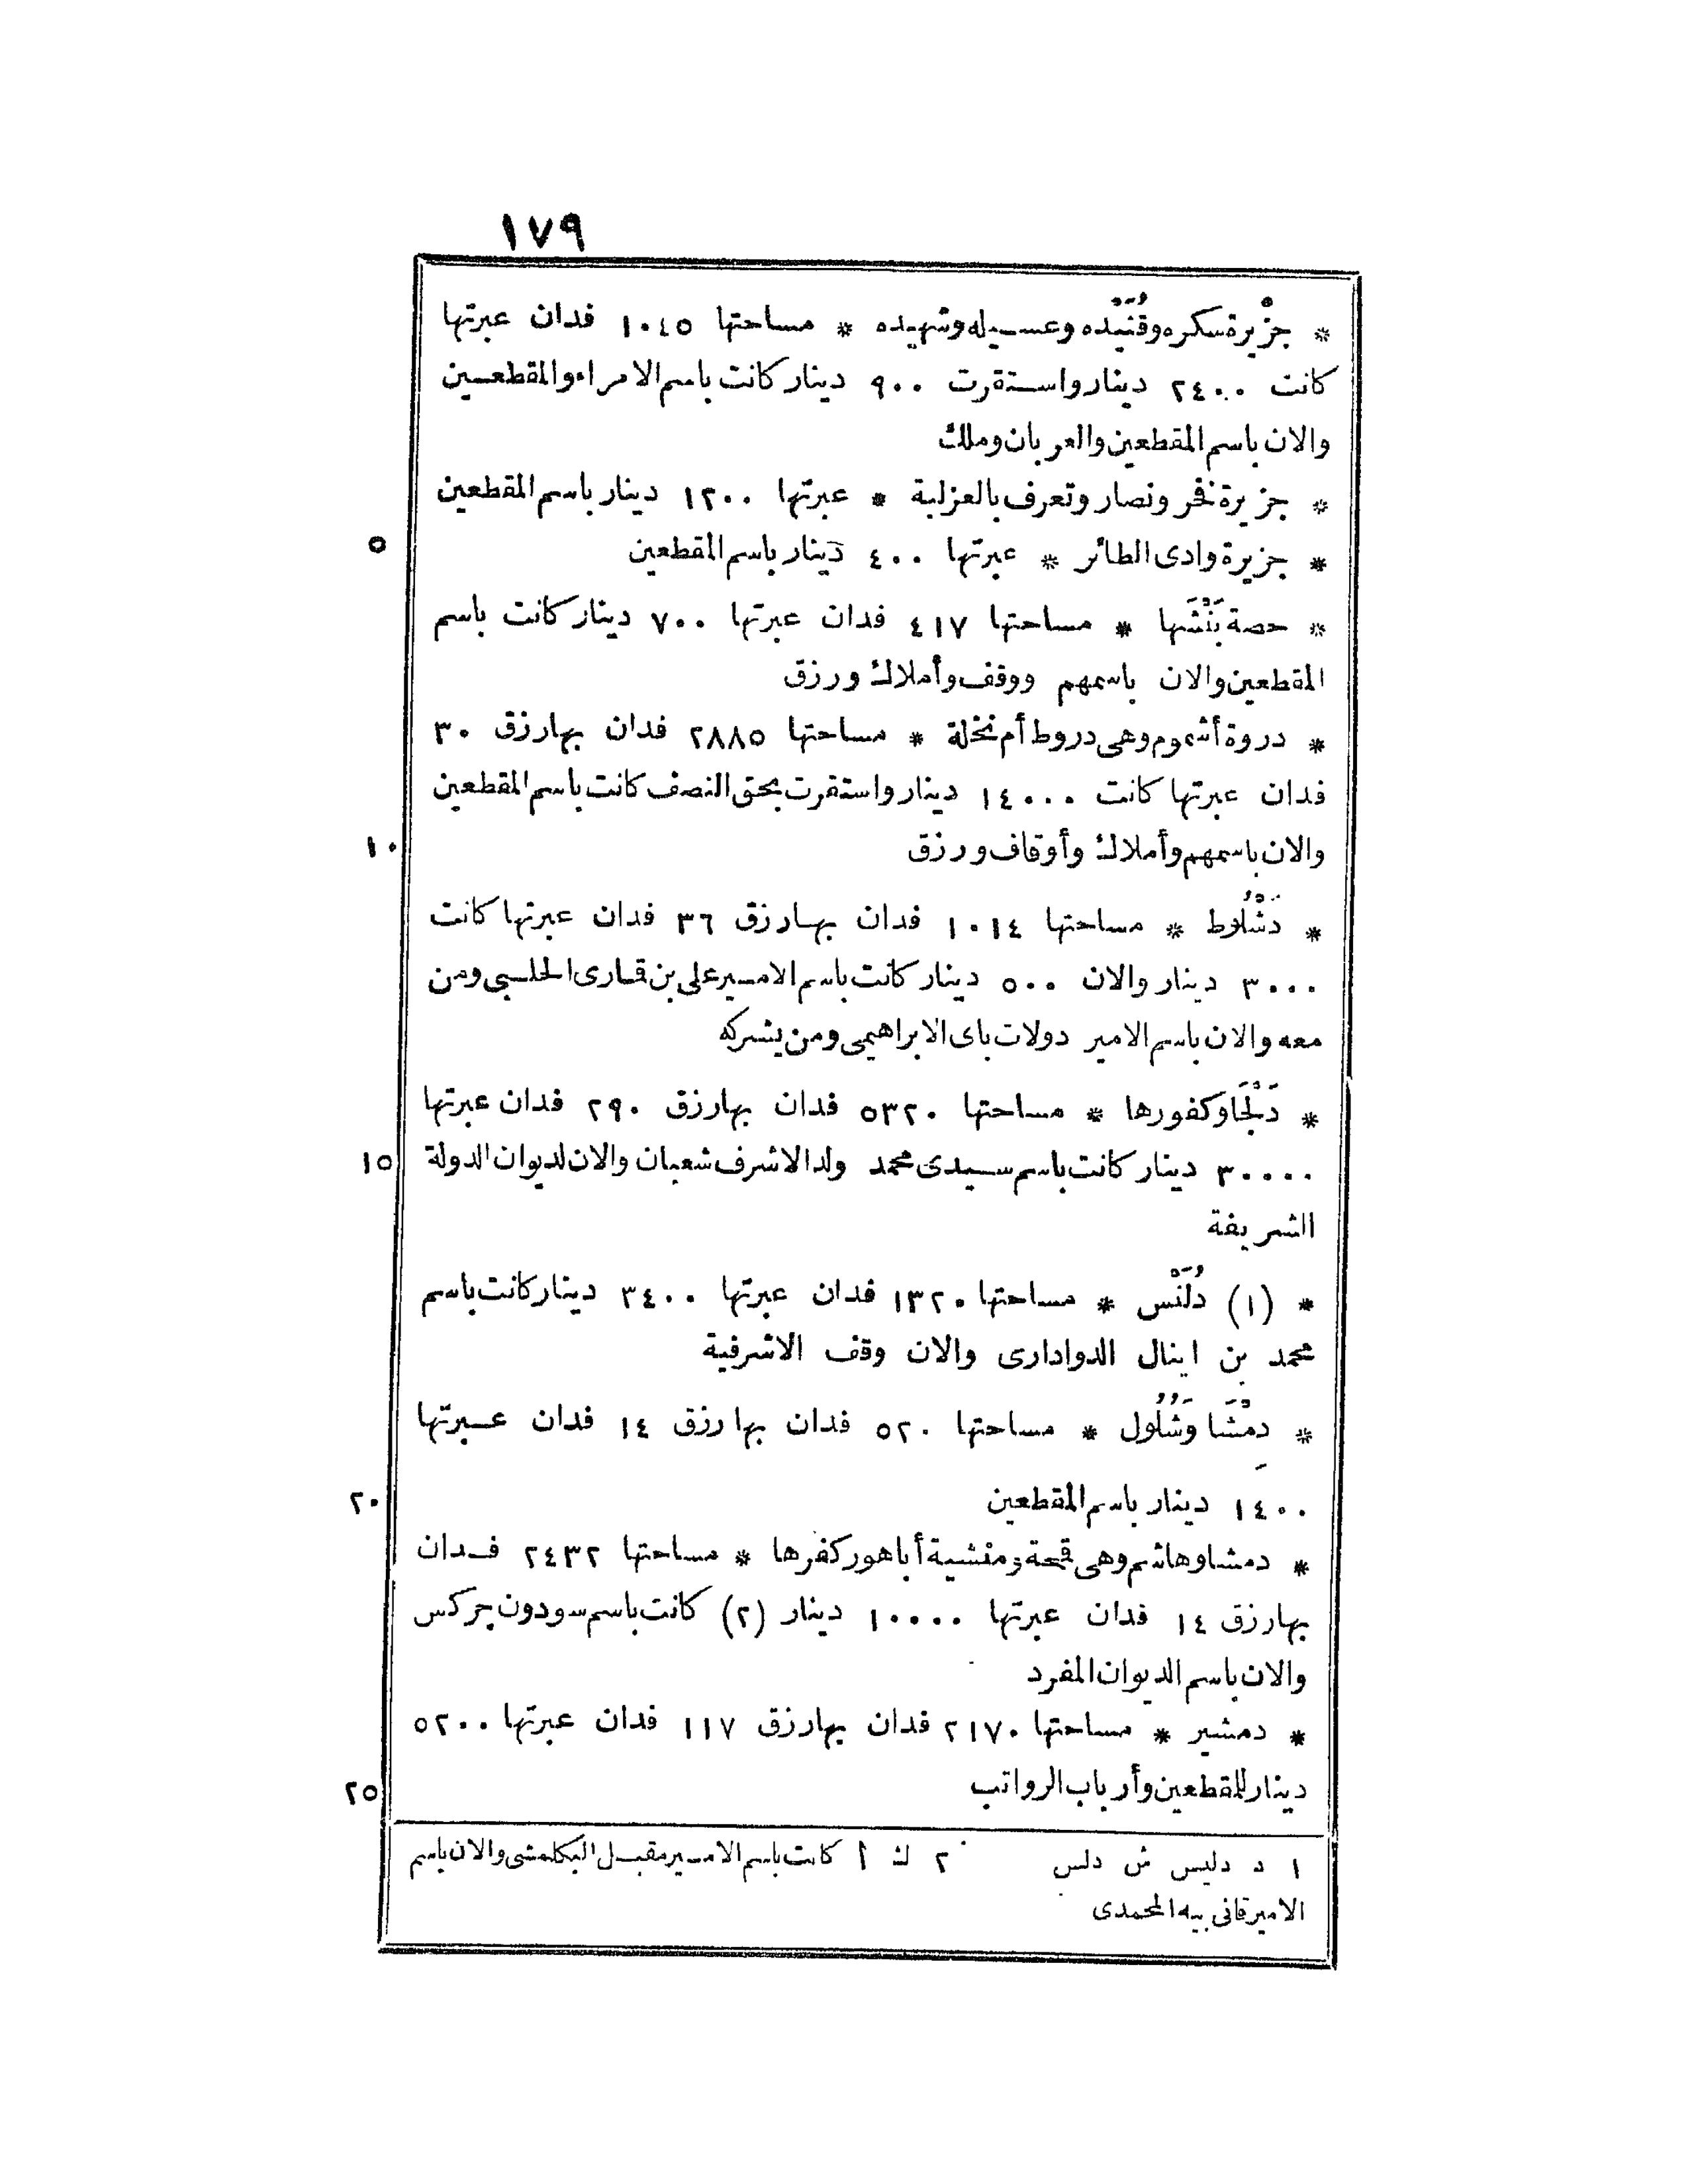 ١٧٩
* جزْيرة سكره وقُنَيْده وعسيله وشهيده * مساحتها ١٠٤٥ فدان عبرتها
كانت ٢٤٠٠ دينار واستقرت ٩٠٠ دينار كانت باسم الامراء والمقطعين
والان باسم المقطعين والعربان وملك
* جزيرة نفر ونصار وتعرف بالعزلية * عبرتها ١٢٠٠ دينار باسم المقطعين
٥ * جزيرة وادى الطائر * عبرتها ٤٠٠ دينار باسم المقطعين
* حصة بَنْشَها * مساحتها ٤١٧ فدان عبرتها ٧٠٠ دينار كانت باسم
المقطعين والان باسمهم ووقف وأملاك ورزق
* دروة أشموم وهى دروط أم نخلة * مساحتها ٢٨٨٥ فدان بها رزق ٣٠
فدان عبرتها كانت ١٤٠٠٠ دينار واستقرت بحق النصف كانت باسم المقطعين
١٠ والان باسمهم وأملاك وأوقاف ورزق
* دَشْلُوط * مساحتها ١٠١٤ فدان بها رزق ٣٦ فدان عبرتها كانت
٣٠٠٠ دينار والان ٥٠٠ دينار كانت باسم الامير على بن قمارى الحلبى ومن
معه والان باسم الامير دولات باى الابراهيمى ومن يشركه
* دَلْجَا وكفورها * مساحتها ٥٣٢٠ فدان بها رزق ٢٩٠ فدان عبرتها
١٥ ٣٠٠٠٠ دينار كانت باسم سيدى محمد ولد الاشرف شعبان والان لديوان الدولة
الشريفة
* (١) دُلَنْس * مساحتها ١٣٢٠ فدان عبرتها ٣٤٠٠ دينار كانت باسم
محمد بن اينال الدوادارى والان وقف الاشرفية
* دِمْشَا وَشُلُول * مساحتها ٥٢٠ فدان بها رزق ١٤ فدان عبرتها
٢٠ ١٤٠٠ دينار باسم المقطعين
* دمشاوهاشم وهى قمحة ومنشية أباهور كفرها * مساحتها ٢٤٣٢ فدان
بها رزق ١٤ فدان عبرتها ١٠٠٠٠ دينار (٢) كانت باسم سودون جركس
والان باسم الديوان المفرد
* دمشير * مساحتها ٢١٧٠ فدان بها رزق ١١٧ فدان عبرتها ٥٢٠٠
٢٥ دينار للمقطعين وأرباب الرواتب
١ د دليس ش دلس ٢ ك أ كانت باسم الامير مقبل البكلمشى والان باسم
الامير قانى بيه المحمدى